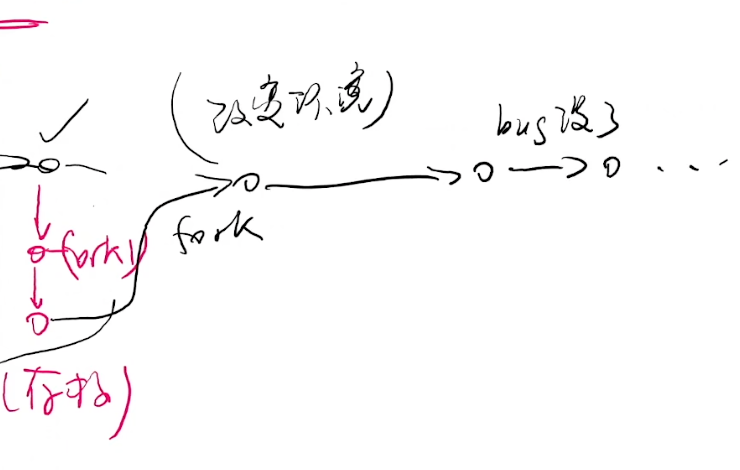 (改变环境)
bug没了
fork
fork1
(存档)